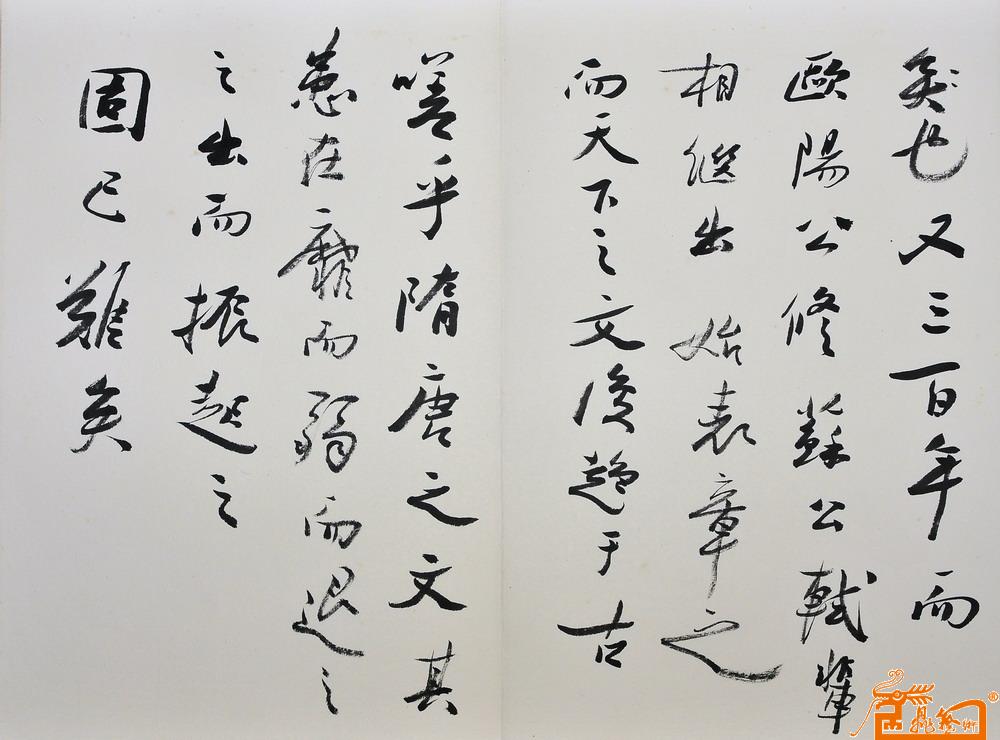 矣也又三百年而
歐陽公修蘇公軾輩
相繼出始表章之
而天下之文復趋于古
嗟乎隋唐之文其
患在靡而弱而退之
之出而振起之
固已難矣